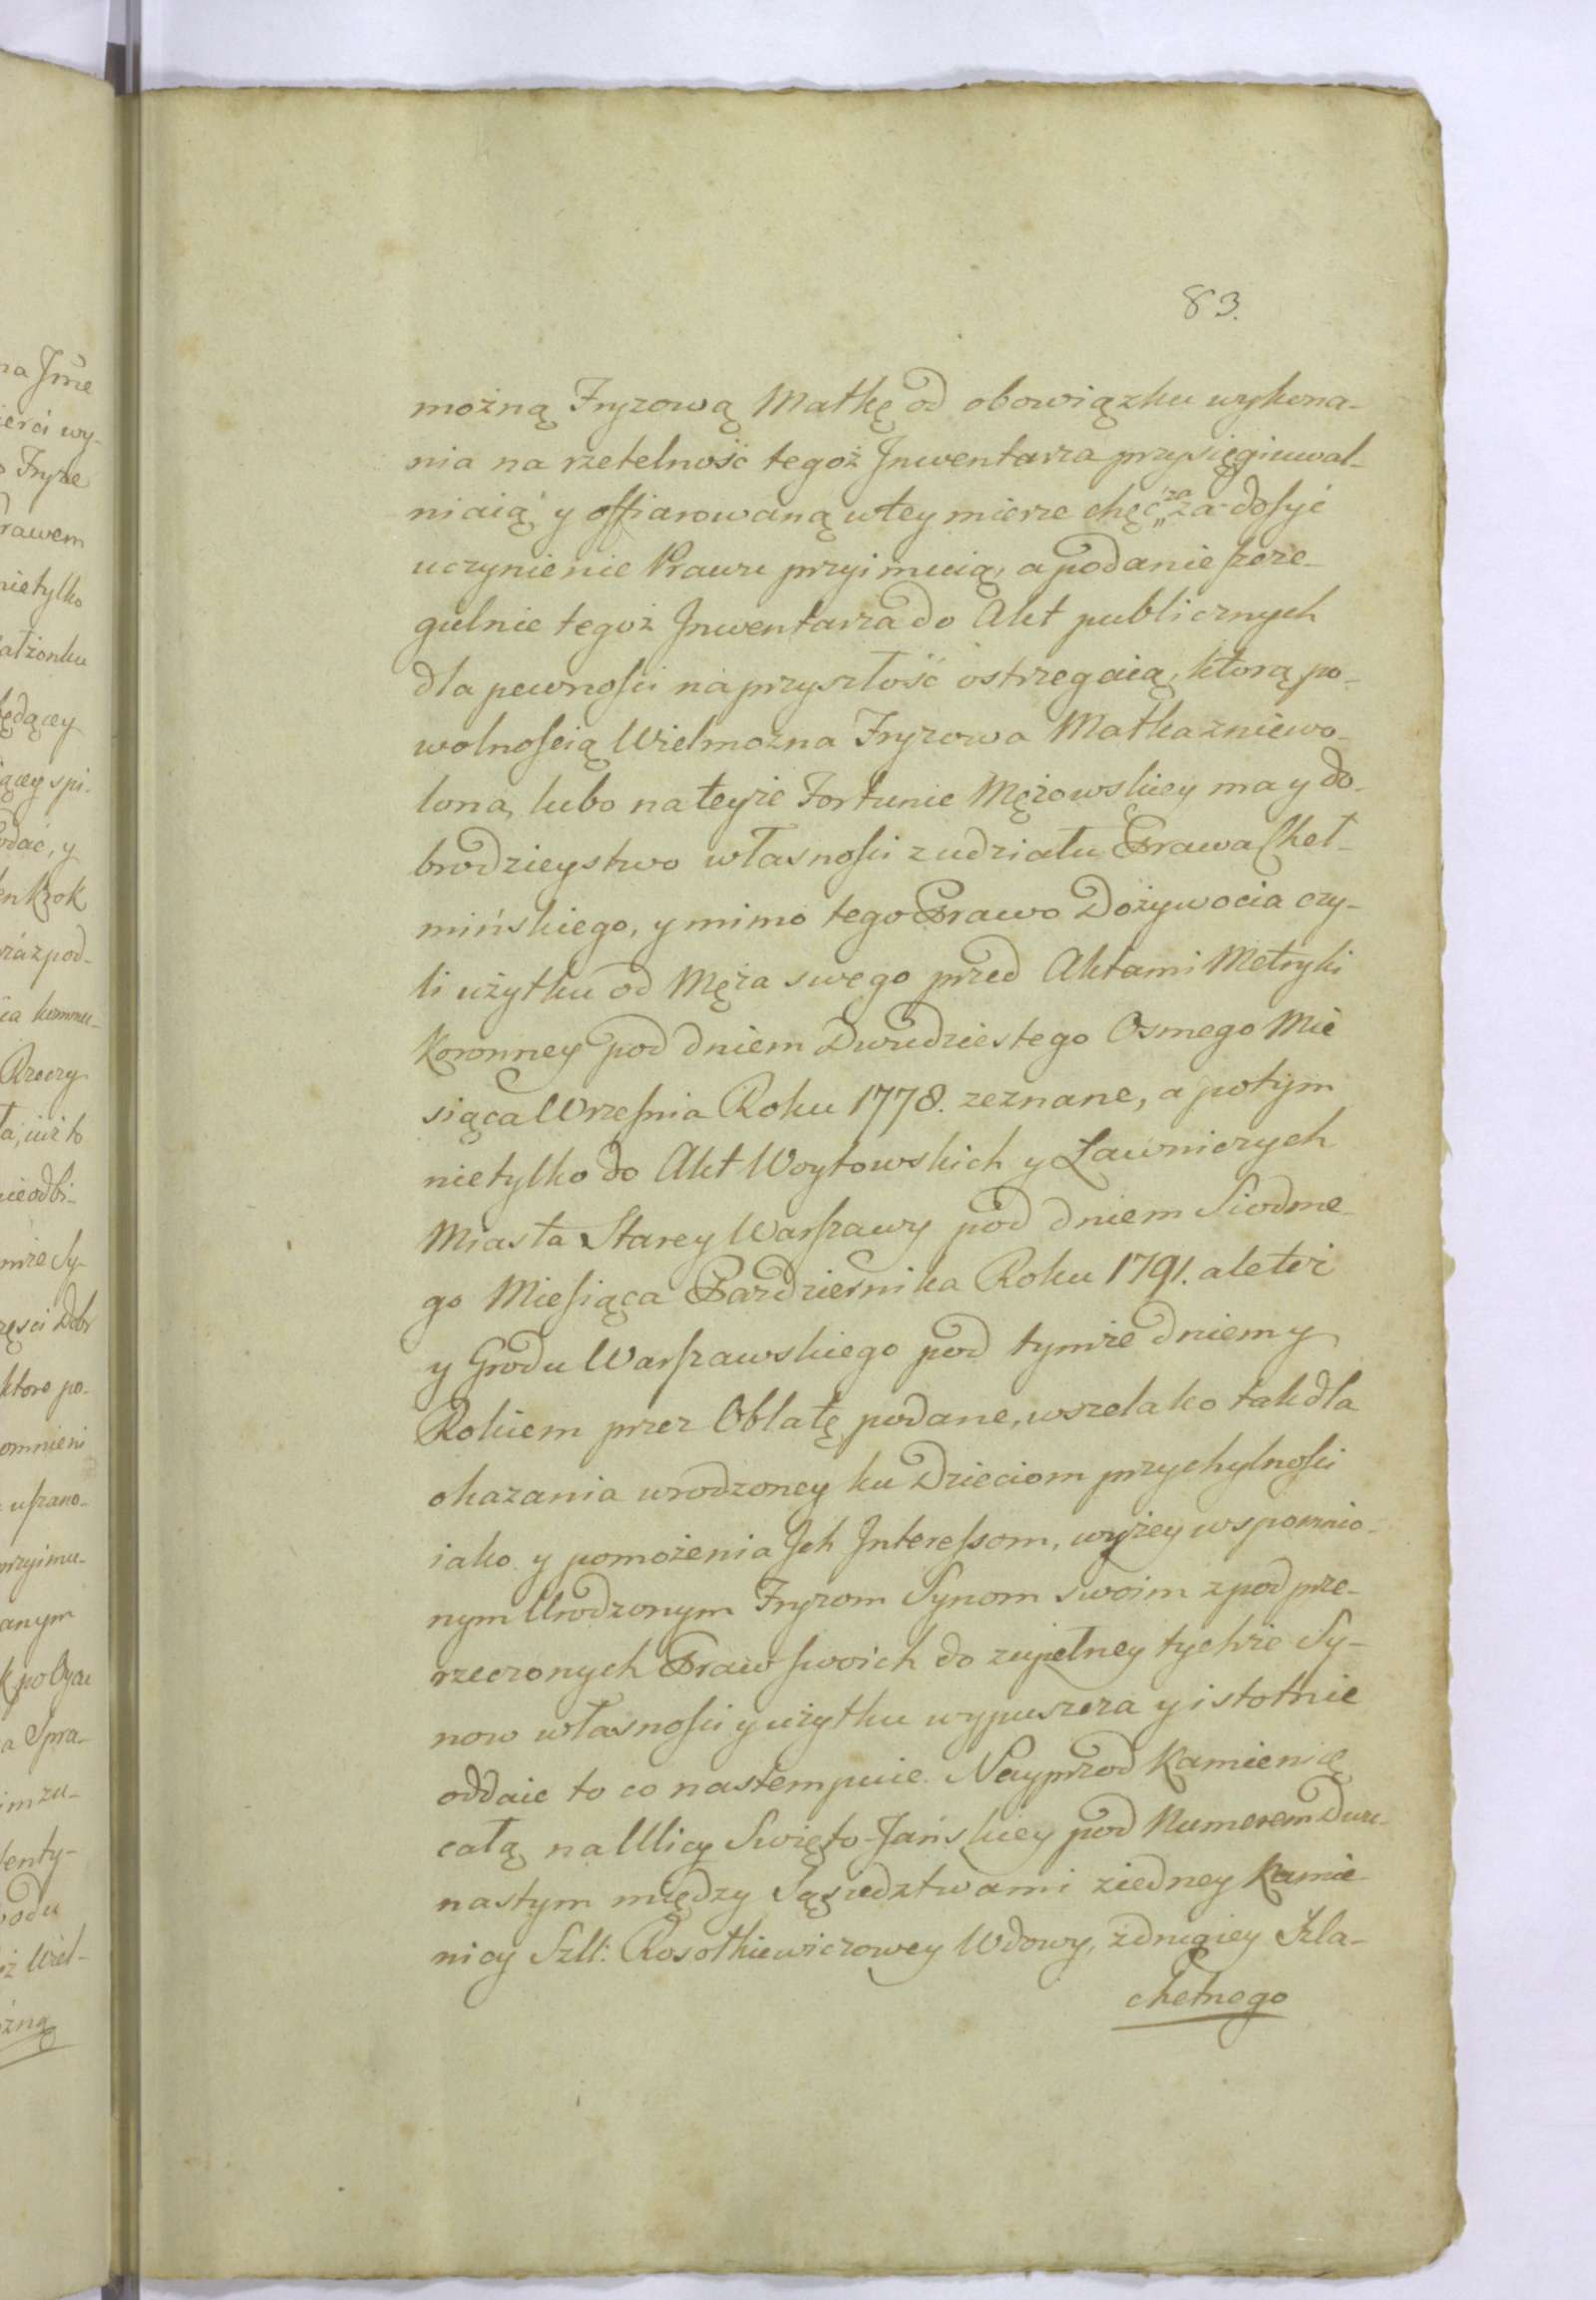 83.
możną Fryzową Matkę od obowiązku wykona-
nia na rzetelność tegoż Jnwentarza przysięgi uwal-
niaią, y offiarowaną w tey mierze chęć „za dosyć
uczynienie Prawu przyimuią, a podanie szcze-
gulnie tegoż Jnwentarza do Akt publicznych
dla pewności na przyszłość ostrzegaią, którą po-
wolnością Wielmożna Fryzowa Matka zniewo-
lona, lubo na teyże Fortunie Mężowskiey ma y do-
brodzieystwo własności z udziału Prawa Cheł-
mińskiego, y mimo tego Prawo Dożywocia czy-
li użytku od Męża swego przed Aktami Metryki
Koronney pod dniem Dwudziestego Osmego Mie
siąca Września Roku 1778. zeznane, a potym
nie tylko do Akt Woytowskich y Ławniczych
Miasta Starey Warszawy pod dniem Siodme-
go Miesiąca Pazdziernika Roku 1791. ale też
y Grodu Warszawskiego pod tymże dniem y
Rokiem przez Oblatę podane, wszelako tak dla
okazania wrodzoney ku Dzieciom przychylności
iako y pomożenia Jch Jnteressom, wyżey wspomnio-
nym Urodzonym Fryzom Synom swoim z pod prze-
rzeczonych Praw swoich do zupełney tychże Sy-
now własności y użytku wypuszcza y istotnie
oddaie to co nastempuie. Nayprzod Kamienicę
całą na Ulicy Swięto-Jańskiey pod Numerem Dwu-
nastym między Sąsiedztwami z iedney Kamie-
nicy Szll: Rosołkiewiczowey Wdowy, z drugiey Szla-
chetnego